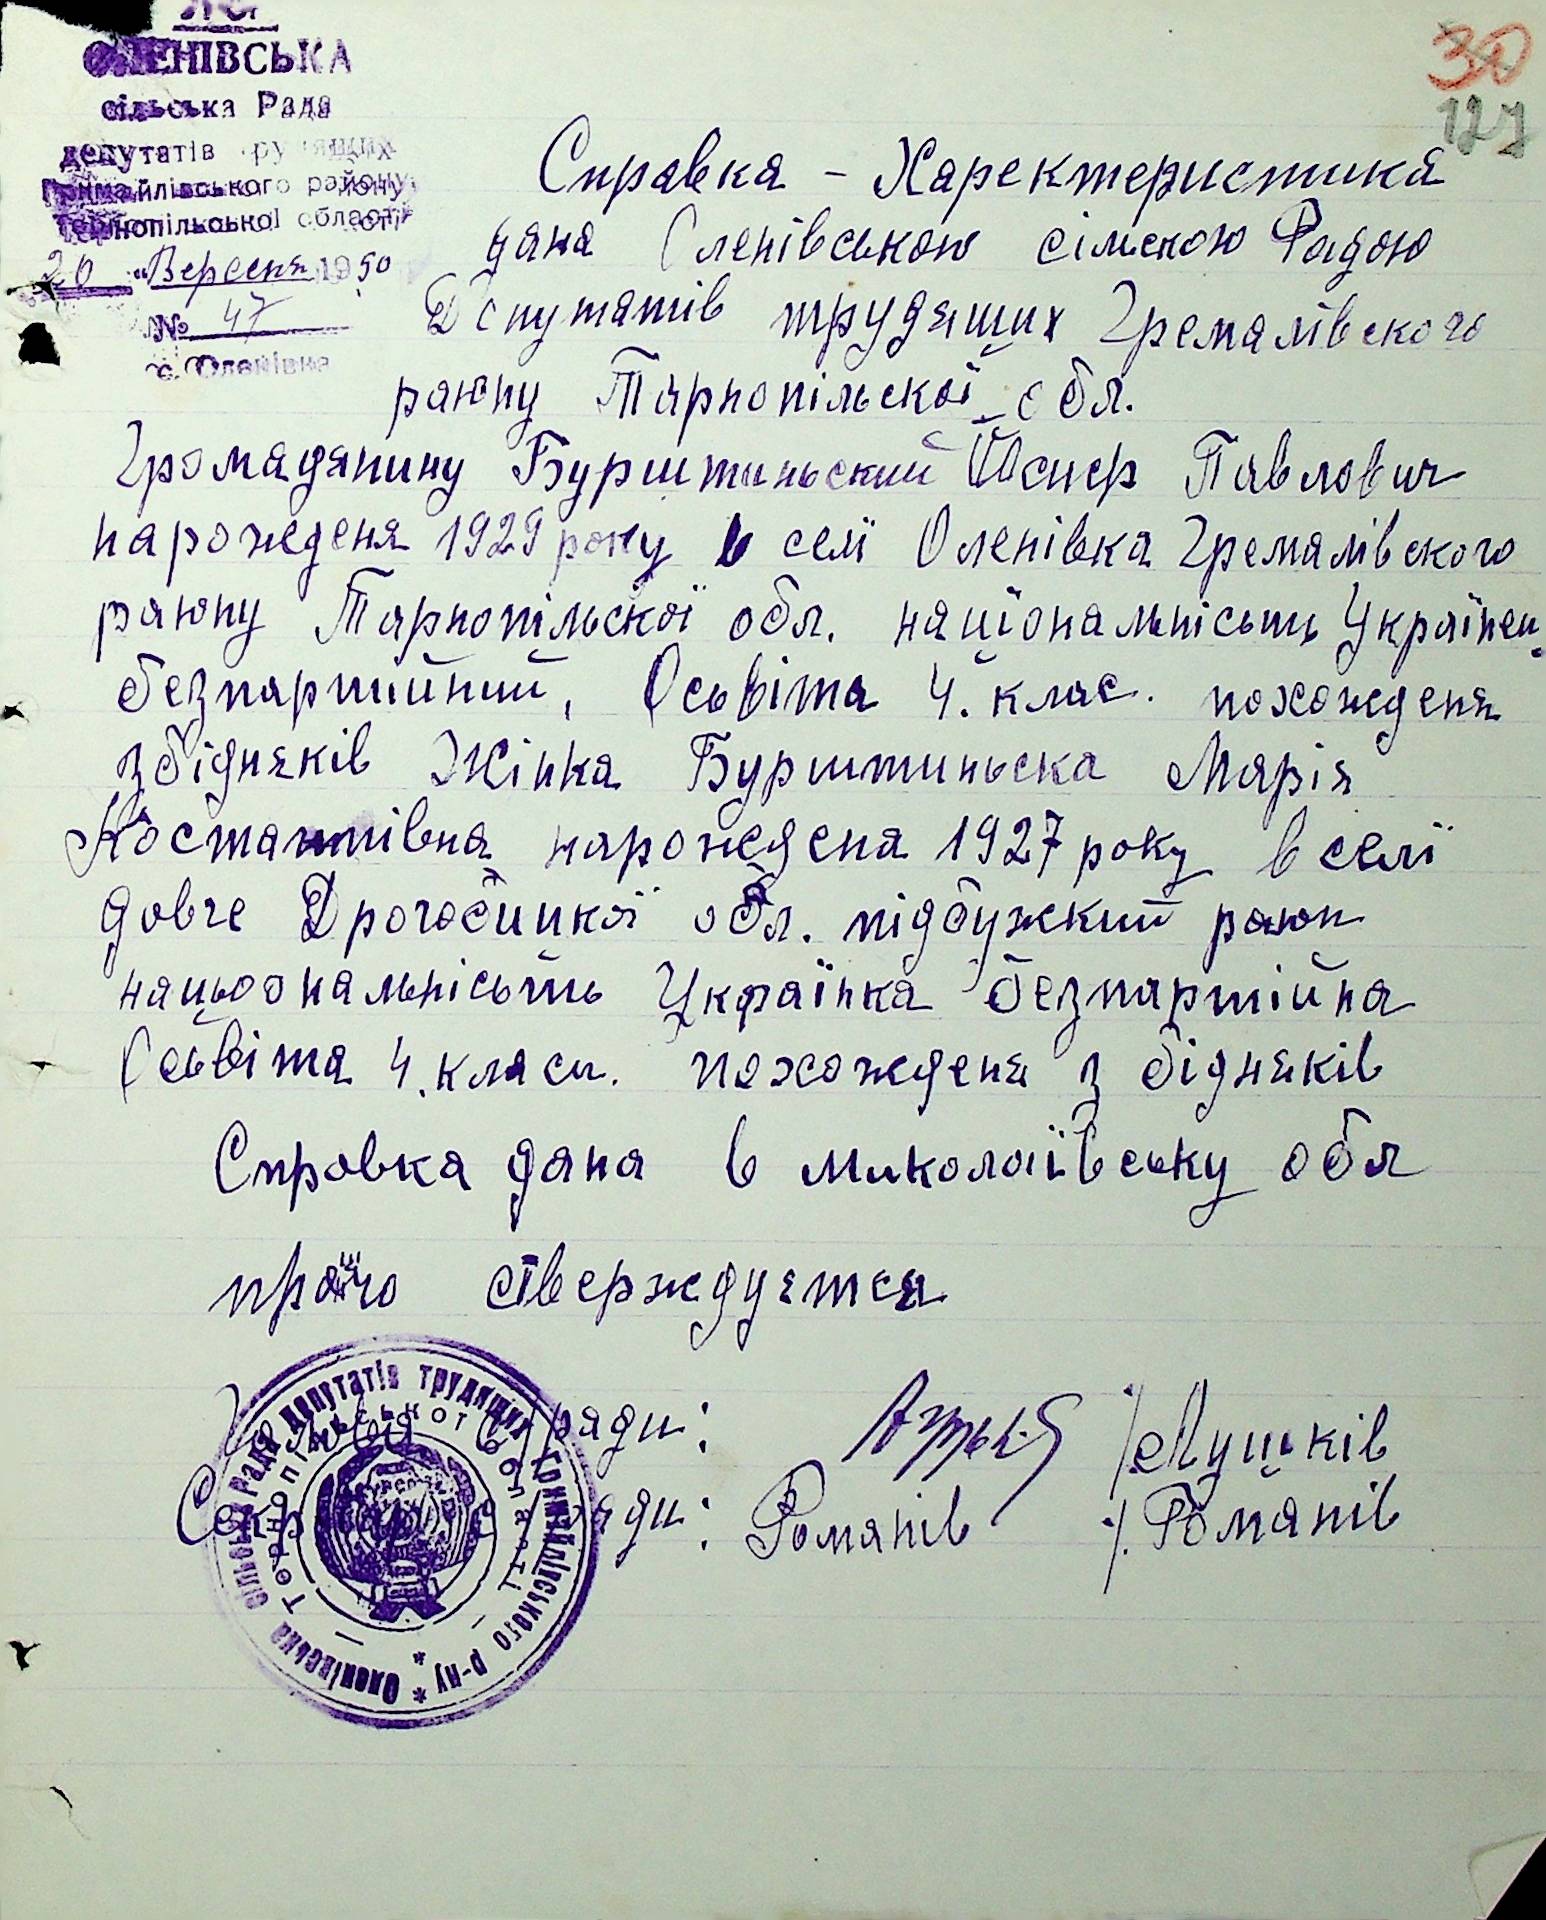 УССР
ОЛЕНІВСЬКА
сільська Рада
депутатів трудящих
Гримайлівського району
Тернопільської області
20 "Вересня 1950
№ 47
с. Оленівка
30
127
Справка - Харектеристика
дана Оленівською сільскою Радою
Депутатів трудящих Гремалівского
раюну Тарнопільскої обл.
Громадянину Бурштиньский Йосиф Павлович
нарожденя 1929 року в селї Оленівка Гремалівского
раюну Тарнопільскої обл. націона льнісьть Українец
безпартійний, Осьвіта 4. клас. похожденя
з бідняків Жінка Бурштиньска Марія
Костантівна нарождена 1927 року в селї
довге Дрогобицкої обл. підбужкий раюн
нацьоональнісьть Українка безпартійна
Осьвіта 4. кляси. похожденя з бідняків
Справка дана в миколаївську обл
про що стверждуется
Голова с/ради: /Лушків
Секретар с/ради: Романів /. Романів
Оленівська сільська Рада депутатів трудящих Гримайлівського р-ну
Тернопільської області